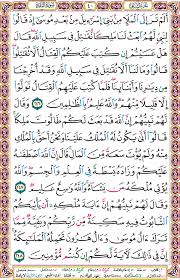 أَلَمْ تَرَ إِلَى ٱلْمَلَإِ مِنۢ بَنِىٓ إِسْرَٰٓءِيلَ مِنۢ بَعْدِ مُوسَىٰٓ إِذْ قَالُوا۟
لِنَبِىٍّ لَّهُمُ ٱبْعَثْ لَنَا مَلِكًا نُّقَٰتِلْ فِى سَبِيلِ ٱللَّهِ ۖ قَالَ
هَلْ عَسَيْتُمْ إِن كُتِبَ عَلَيْكُمُ ٱلْقِتَالُ أَلَّا تُقَٰتِلُوا۟ ۖ
قَالُوا۟ وَمَا لَنَآ أَلَّا نُقَٰتِلَ فِى سَبِيلِ ٱللَّهِ وَقَدْ أُخْرِجْنَا
مِن دِيَٰرِنَا وَأَبْنَآئِنَا ۖ فَلَمَّا كُتِبَ عَلَيْهِمُ ٱلْقِتَالُ تَوَلَّوْا۟
إِلَّا قَلِيلًا مِّنْهُمْ ۗ وَٱللَّهُ عَلِيمٌۢ بِٱلظَّٰلِمِينَ ٢٤٦ وَقَالَ
لَهُمْ نَبِيُّهُمْ إِنَّ ٱللَّهَ قَدْ بَعَثَ لَكُمْ طَالُوتَ مَلِكًا ۚ
قَالُوٓا۟ أَنَّىٰ يَكُونُ لَهُ ٱلْمُلْكُ عَلَيْنَا وَنَحْنُ أَحَقُّ بِٱلْمُلْكِ
مِنْهُ وَلَمْ يُؤْتَ سَعَةً مِّنَ ٱلْمَالِ ۚ قَالَ إِنَّ ٱللَّهَ ٱصْطَفَىٰهُ
عَلَيْكُمْ وَزَادَهُۥ بَسْطَةً فِى ٱلْعِلْمِ وَٱلْجِسْمِ ۖ وَٱللَّهُ يُؤْتِى
مُلْكَهُۥ مَن يَشَآءُ ۚ وَٱللَّهُ وَٰسِعٌ عَلِيمٌ ٢٤٧ وَقَالَ
لَهُمْ نَبِيُّهُمْ إِنَّ ءَايَةَ مُلْكِهِۦٓ أَن يَأْتِيَكُمُ
ٱلتَّابُوتُ فِيهِ سَكِينَةٌ مِّن رَّبِّكُمْ وَبَقِيَّةٌ مِّمَّا
تَرَكَ ءَالُ مُوسَىٰ وَءَالُ هَٰرُونَ تَحْمِلُهُ ٱلْمَلَٰٓئِكَةُ ۚ
إِنَّ فِى ذَٰلِكَ لَءَايَةً لَّكُمْ إِن كُنتُم مُّؤْمِنِينَ ٢٤٨